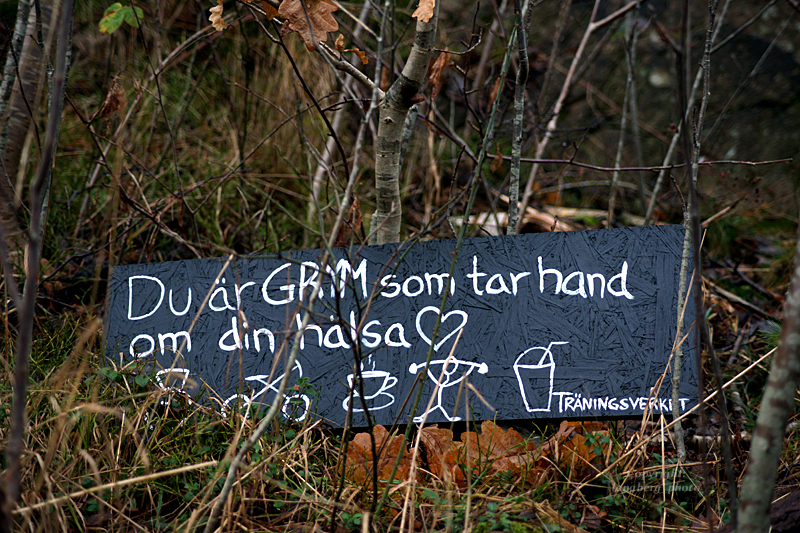 Du är GRYM som tar hand
om din hälsa
TRÄNINGSVERKET